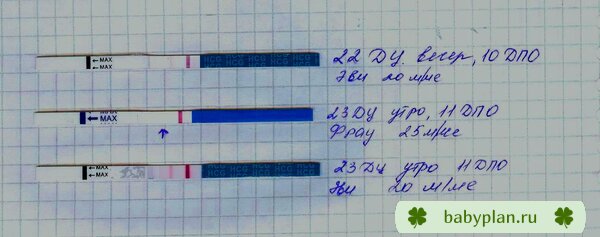 ← MAX
← MAX
HCG HCG HCG HCG
22 ДЦ. вечер, 10 ДПО
Эви 20 м/ме
← MAX
23 ДЦ утро, 11 ДПО
Фрау 25 м/ме
← MAX
← MAX
HCG HCG HCG HCG
23 ДЦ утро 11 ДПО
Эви 20 м/ме
babyplan.ru